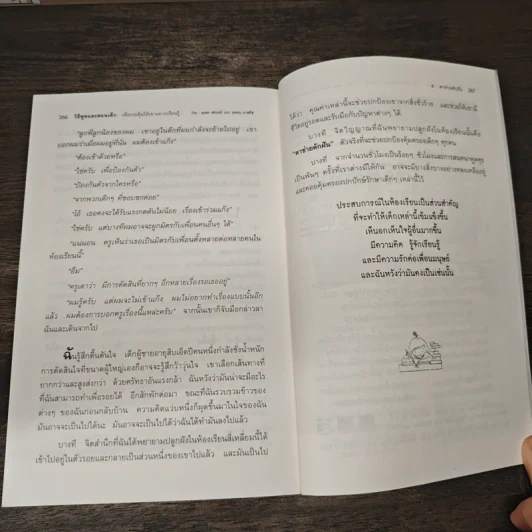 266 วิธีพูดและสอนเด็ก
"ลูกพี่ลูกน้องของผม เขาอยู่ในตึกที่ผมกำลังจะย้ายไปอยู่ เขา
บอกผมว่าเมื่อผมย้ายไปอยู่ที่นั่น ผมต้องเข้าแก๊ง"
"ต้องเข้าด้วยหรือ"
"ใช่ครับ เพื่อป้องกันตัว"
"ป้องกันตัวจากใครหรือ"
"จากพวกเด็กๆ ที่ชอบชกต่อย"
"โอ้ เธอคงจะได้รับแรงกดดันไม่น้อย เรื่องเข้าร่วมแก๊ง"
"ใช่ครับ แต่บางทีผมอาจจะผูกมิตรกับเพื่อนคนอื่นๆ ได้"
"แน่นอน ครูเห็นว่าเธอเป็นมิตรกับเพื่อนตั้งหลายต่อหลายคนใน
ห้องเรียนนี้"
"อืม"
"ครูเดาว่า มีการตัดสินที่ยากๆ อีกหลายเรื่องรอเธออยู่"
"ผมรู้ครับ แต่ผมจะไม่เข้าแก๊ง ผมไม่อยากทำเรื่องแบบนั้นอีก
แล้ว ผมต้องการบอกครูเรื่องนี้แหละครับ" จากนั้นเขาก็จับมือกล่าวลา
ฉันและเดินจากไป
ฉันรู้สึกตื้นตันใจ เด็กผู้ชายอายุสิบเอ็ดปีคนหนึ่งกำลังชั่งน้ำหนัก
การตัดสินใจที่ขนาดผู้ใหญ่เองก็อาจจะรู้สึกว้าวุ่นใจ เขาเลือกเส้นทางที่
ยากกว่าและสูงส่งกว่า ด้วยศรัทธาอันแรงกล้า ฉันหวังว่ามันน่าจะมีอะไร
ที่ฉันสามารถทำเพื่อรอยได้ อีกสักพักต่อมา ขณะที่ฉันรวบรวมข้าวของ
ต่างๆ ของฉันก่อนกลับบ้าน ความคิดแวบหนึ่งก็ผุดขึ้นมาในใจของฉัน
มันอาจจะเป็นไปได้นะ มันอาจจะเป็นไปได้ว่าฉันได้ทำมันลงไปแล้ว
บางที จิตสำนึกที่ฉันได้พยายามปลูกฝังในห้องเรียนสี่เหลี่ยมนี้ได้
เข้าไปอยู่ในตัวรอยและกลายเป็นส่วนหนึ่งของเขาไปแล้ว และมันเป็นไป
267
ได้ว่า คุณค่าเหล่านี้จะช่วยปกป้องเขาจากสิ่งชั่วร้าย และช่วยให้เขามี
ชีวิตอยู่รอดและรับมือกับปัญหาต่างๆ ได้
บางที จิตวิญญาณที่ฉันพยายามปลูกฝังในห้องเรียนนั้นคือ
"ตาข่ายดักฝัน" ตัวจริงที่จะช่วยคุ้มครองเด็กๆ ทุกคน
บางที จากจำนวนชั่วโมงเป็นร้อยๆ ชั่วโมงและการสนทนาพูดคุย
เป็นพันๆ ครั้งที่เราต่างมีให้กัน อาจจะมีบางสิ่งบางอย่างหลงเหลืออยู่
และคอยคุ้มครองปกปักษ์รักษาเด็กๆ เหล่านี้ไว้
ประสบการณ์ในห้องเรียนเป็นส่วนสำคัญ
ที่จะทำให้เด็กเหล่านี้เข้มแข็งขึ้น
เห็นอกเห็นใจผู้อื่นมากขึ้น
มีความคิด รู้จักเรียนรู้
และมีความรักต่อเพื่อนมนุษย์
และฉันหวังว่ามันคงเป็นเช่นนั้น